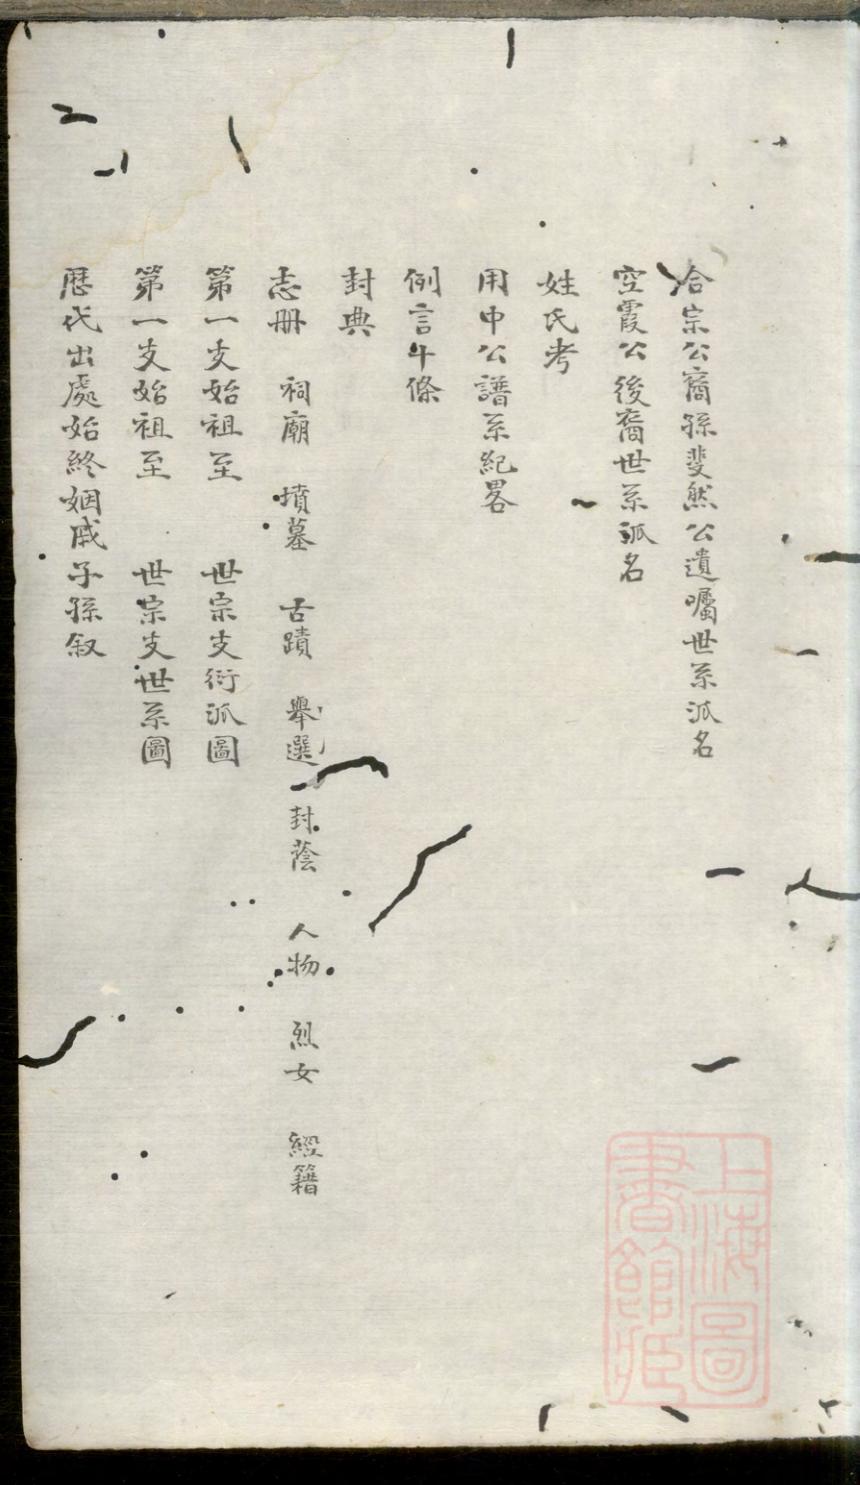 合宗公裔孫斐然公遺囑世系派名
空霞公後裔世系派名
姓氏考
用中公譜系紀畧
例言十條
封典
志冊 祠廟 墳墓 古蹟 舉選 封蔭 人物 烈女 經籍
第一支始祖至 世宗支衍派圖
第一支始祖至 世宗支世系圖
歷代出處始終姻戚子孫叙
上海圖書館藏